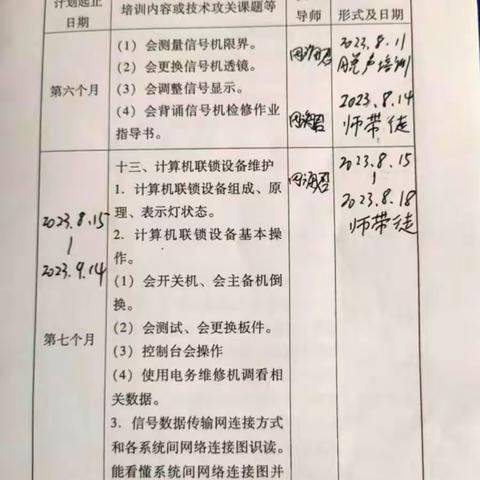 计划起止
日期
培训内容或技术攻关课题等
导师
形式及日期
第六个月
（1）会测量信号机限界。
（2）会更换信号机透镜。
（3）会调整信号显示。
（4）会背诵信号机检修作业
指导书。
2023.8.11
脱产培训
2023.8.14
师带徒
2023.8.15
2023.9.14
第七个月
十三、计算机联锁设备维护
1．计算机联锁设备组成、原
理、表示灯状态。
2．计算机联锁设备基本操
作。
（1）会开关机、会主备机倒
换。
（2）会测试、会更换板件。
（3）控制台会操作
（4）使用电务维修机调看相
关数据。
3．信号数据传输网连接方式
和各系统间网络连接图识读。
能看懂系统间网络连接图并
2023.8.15
2023.8.18
师带徒